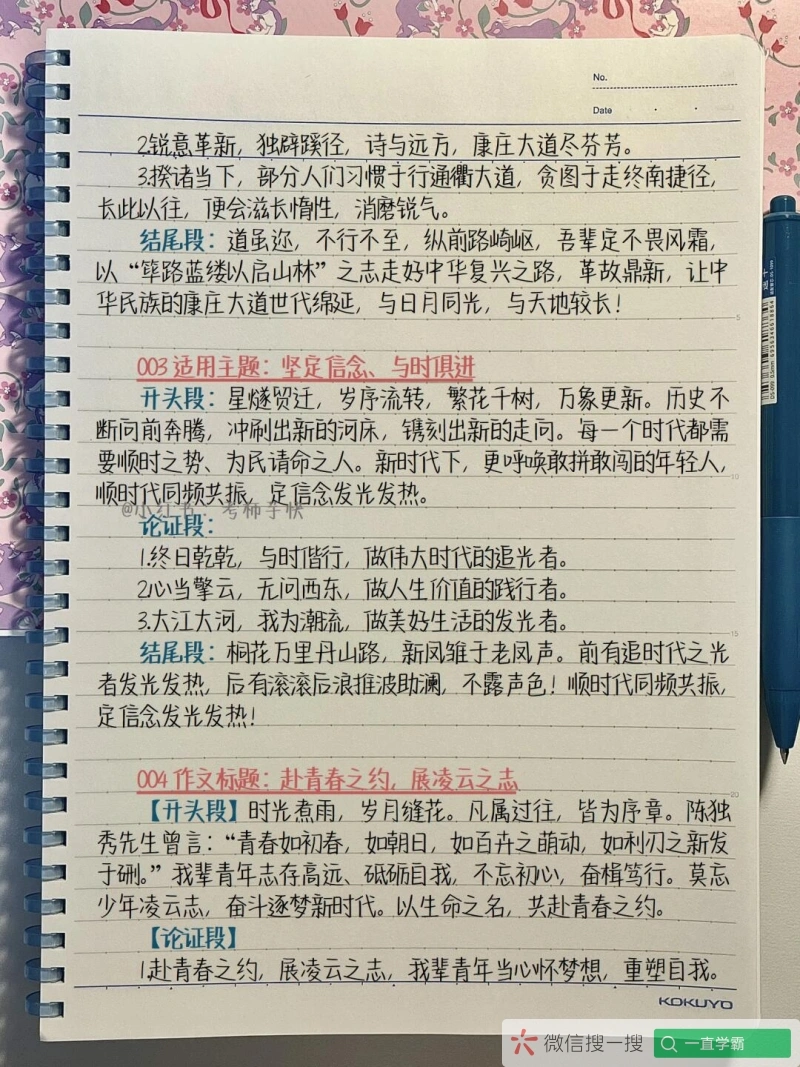 No.
Date
2.锐意革新，独辟蹊径，诗与远方，康庄大道尽芬芳。
3.揆诸当下，部分人们习惯于行通衢大道，贪图于走终南捷径，
长此以往，便会滋长惰性，消磨锐气。
结尾段：道虽迩，不行不至，纵前路崎岖，吾辈定不畏风霜，
以“筚路蓝缕以启山林”之志走好中华复兴之路，革故鼎新，让中
华民族的康庄大道世代绵延，与日月同光，与天地较长！
5
003适用主题：坚定信念、与时俱进
开头段：星燧贸迁，岁序流转，繁花千树，万象更新。历史不
断向前奔腾，冲刷出新的河床，镌刻出新的走向。每一个时代都需
要顺时之势、为民请命之人。新时代下，更呼唤敢拼敢闯的年轻人，
10
顺时代同频共振，定信念发光发热。
@小红书·考师手快
论证段：
1.终日乾乾，与时偕行，做伟大时代的追光者。
2.心当擎云，无问西东，做人生价值的践行者。
3.大江大河，我为潮流，做美好生活的发光者。
15
结尾段：桐花万里丹山路，新凤雏于老凤声。前有追时代之光
者发光发热，后有滚滚后浪推波助澜，不露声色！顺时代同频共振，
定信念发光发热！
004作文标题：赴青春之约，展凌云之志
20
【开头段】时光煮雨，岁月缝花。凡属过往，皆为序章。陈独
秀先生曾言：“青春如初春，如朝日，如百卉之萌动，如利刃之新发
于硎。”我辈青年志存高远、砥砺自我，不忘初心，奋楫笃行。莫忘
少年凌云志，奋斗逐梦新时代。以生命之名，共赴青春之约。
【论证段】
1.赴青春之约，展凌云之志，我辈青年当心怀梦想，重塑自我。
KOKUYO
微信搜一搜
一直学霸